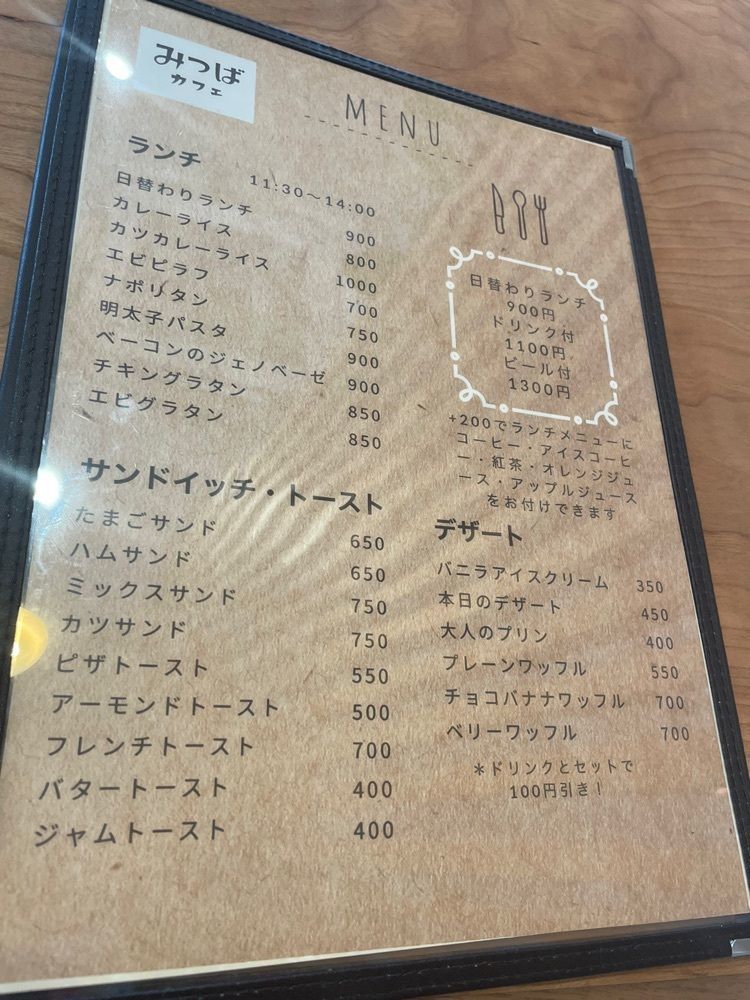 みつば
カフェ
MENU
ランチ 11:30～14:00
日替わりランチ 900
カレーライス 800
カツカレーライス 1000
エビピラフ 700
ナポリタン 750
明太子パスタ 900
ベーコンのジェノベーゼ 900
チキングラタン 850
エビグラタン 850
サンドイッチ・トースト
たまごサンド 650
ハムサンド 650
ミックスサンド 750
カツサンド 750
ピザトースト 550
アーモンドトースト 500
フレンチトースト 700
バタートースト 400
ジャムトースト 400
日替わりランチ
900円
ドリンク付
1100円
ビール付
1300円
+200でランチメニューに
コーヒー・アイスコーヒ
ー・紅茶・オレンジジュ
ース・アップルジュース
をお付けできます
デザート
バニラアイスクリーム 350
本日のデザート 450
大人のプリン 400
プレーンワッフル 550
チョコバナナワッフル 700
ベリーワッフル 700
＊ドリンクとセットで
100円引き！